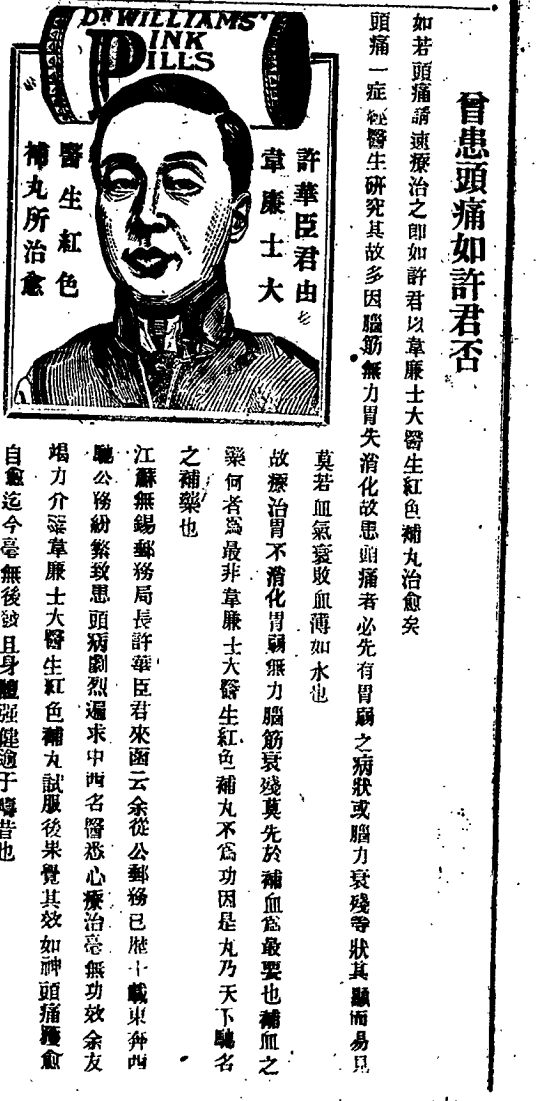 曾患頭痛如許君否
如若頭痛請速療治之即如許君以韋廉士大醫生紅色補丸治愈矣
頭痛一症經醫生研究其故多因腦筋無力胃失消化故患頭痛者必先有胃弱之病狀或腦力衰殘等狀其顯而易見
莫若血氣衰敗血薄如水也
故療治胃不消化胃弱無力腦筋衰殘莫先於補血爲最要也補血之
藥何者爲最非韋廉士大醫生紅色補丸不爲功因是丸乃天下馳名
之補藥也
江蘇無錫郵務局長許華臣君來函云余從公郵務已歷十載東奔西
馳公務紛繁致患頭病劇烈遍求中西名醫悉心療治毫無功效余友
竭力介韋廉士大醫生紅色補丸試服後果覺其效如神頭痛獲愈
自愈迄今毫無後且身體强健逾于疇昔也
DR WILLIAMS'
PINK
PILLS
許華臣君由
韋廉士大
醫生紅色
補丸所治愈